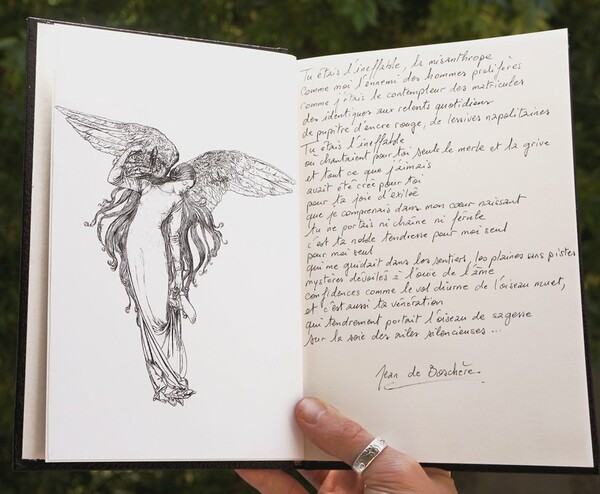 Tu étais l'ineffable, la misanthrope
Comme moi l'ennemi des hommes prolifères
comme j'étais le contempteur des matricules
des identiques aux relents quotidiens
de pupitre d'encre rouge, de lessives napolitaines
Tu étais l'ineffable
où chantaient pour toi seule le merle et la grive
et tout ce que j'aimais
avait été créé pour toi
pour ta joie d'exilée
que je comprenais dans mon cœur naissant
tu ne portais ni chaîne ni férule
c'est ta noble tendresse pour moi seul
pour moi seul
qui me guidait dans les sentiers, les plaines sans pistes
mystères dévoilés à l'ouïe de l'âme
confidences comme le vol diurne de l'oiseau muet,
et c'est aussi ta vénération
qui tendrement portait l'oiseau de sagesse
sur la soie des ailes silencieuses ...
Jean de Boschère